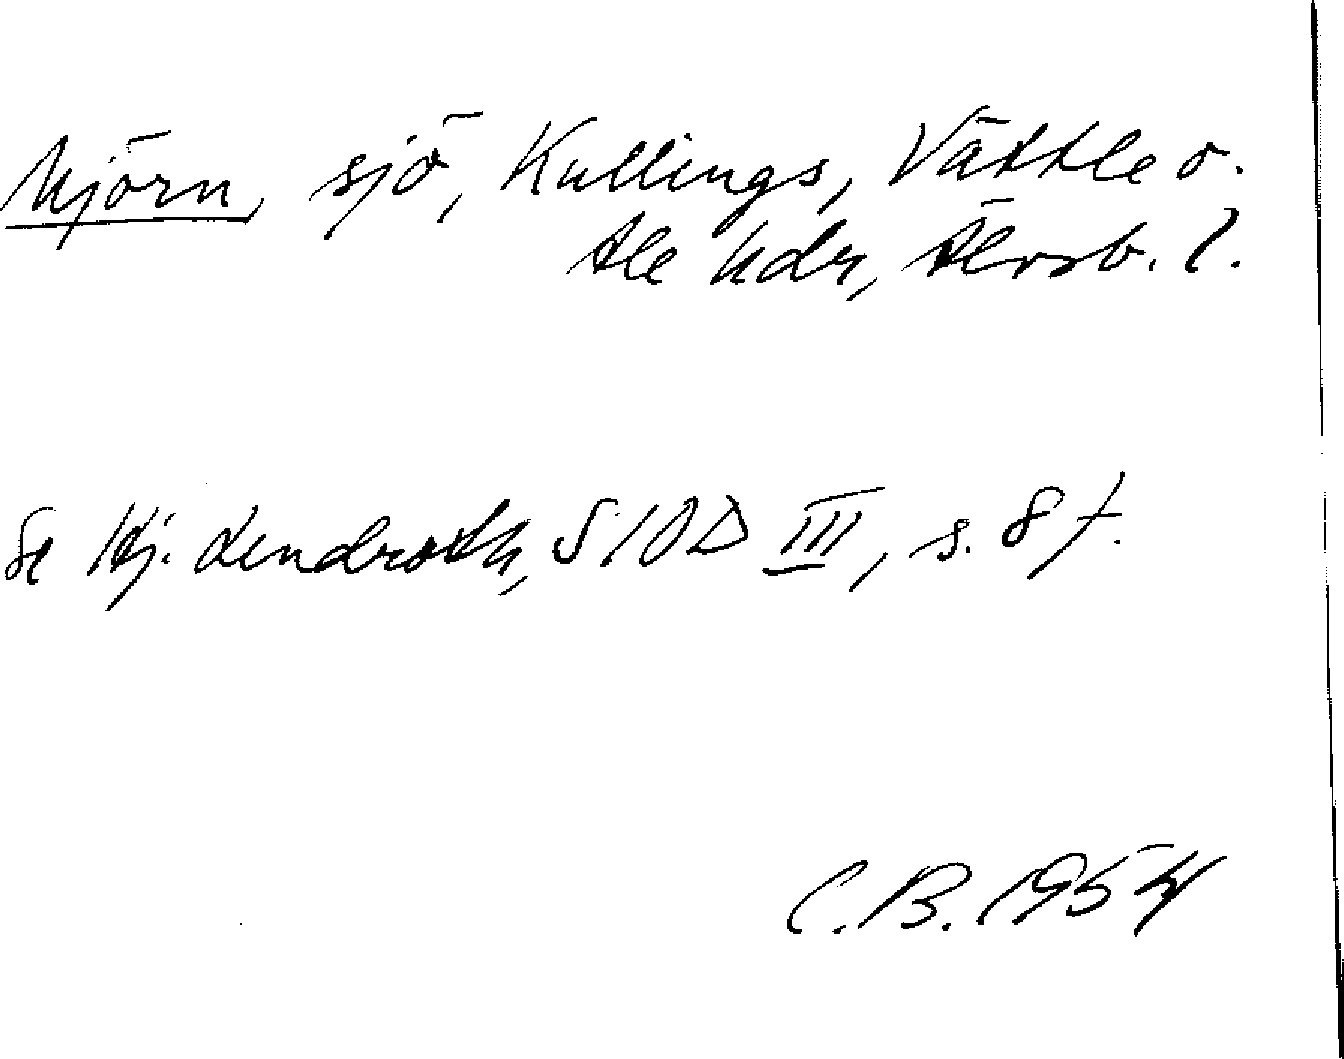 Mjörn, sjö, Kullings, Vättle o.
Ale hdr, Älvsb. l.
Se Hj. Lindroth, SIOD III, s. 8 f.
C.B. 1954